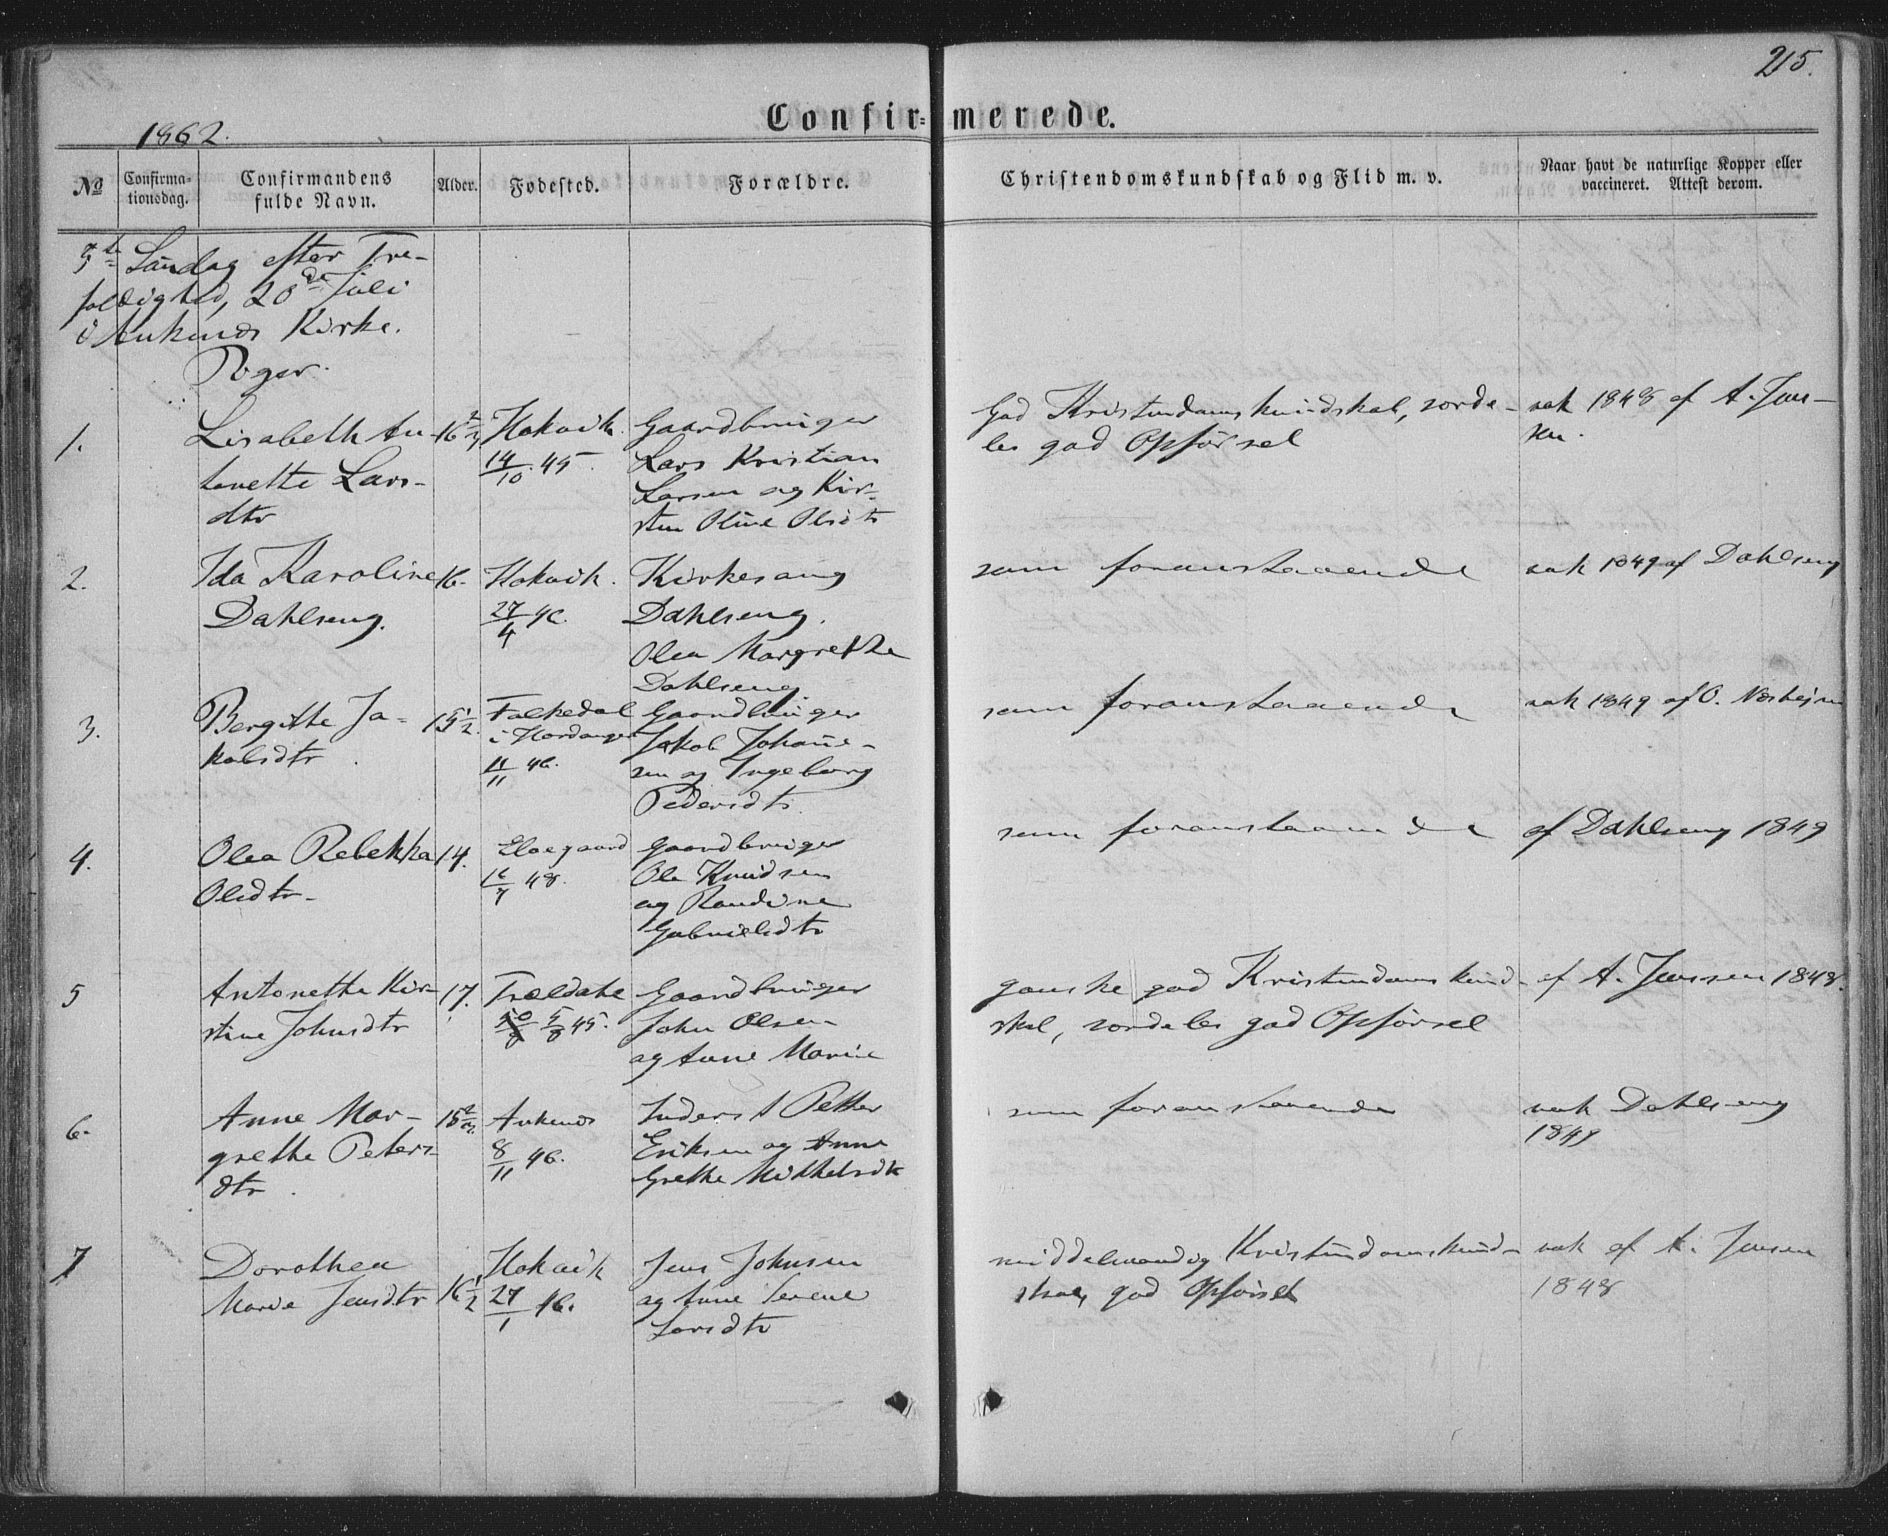 215.
Confir- merede.
1862.
No
Confirma-
tionsdag.
Confirmandens
fulde Navn.
Alder.
Fødested.
Forældre.
Christendomskundskab og Flid m. v.
Naar havt de naturlige Kopper eller
vaccineret. Attest derom.
5te Søndag efter Tre-
foldighed, 20de Juli
i Ankenes Kirke.
Piger.
1.
Lisabeth An-
tonette Lars-
dtr
16 2/3
Hokvik.
14/10 45.
Gaardbruger
Lars Kristian
Larsen og Kir-
sten Oline Olsdtr
God Kristendomskundskab, særde-
les god Opførsel
vak 1848 af A. Jens-
sen.
2.
Ida Karoline
Dahlseng.
16.
Hokvik.
27/4 46.
Kirkesang
Dahlseng.
Olea Margrethe
Dahlseng
som foranstaaende
vak 1849 af Dahlseng
3.
Bergitte Ja-
kobsdtr.
15 1/2.
Falkedal
i Hardanger
11/11 46.
Gaardbruger
Jakob Johane-
sen og Ingeborg
Pedersdtr.
som foranstaaende
vak 1849 af O.
4.
Olea Rebekka
Olsdtr.
14.
48.
Gaardbruger
Ole Knudsen
og Randine
Gabrielsdtr
som foranstaaende
af Dahlseng 1849
5
Antonette Kir-
stine Johnsdtr
17.
Trældahl
5/8 45.
Gaardbruger
John Olsen
og Anne Marie
ganske god Kristendomskund-
skab, særdeles god Opførsel
af A. Jenssen 1848.
6.
Anne Mar-
grethe Peters-
dtr.
15 2/3.
Ankenes
8/11 46.
Inderst Petter
Eriksen og Anne
Grethe Mikkelsdtr
som foranstaaende
vak Dahlseng
1849
7
Dorothea
Marie Jensdtr
16 1/2
Hokvik
27/1 46.
Jens Johnsen
og Anne Serene
Larsdtr
middelmaadig Kristendomskund-
skab, god Opførsel
vak af A. Jensen
1848